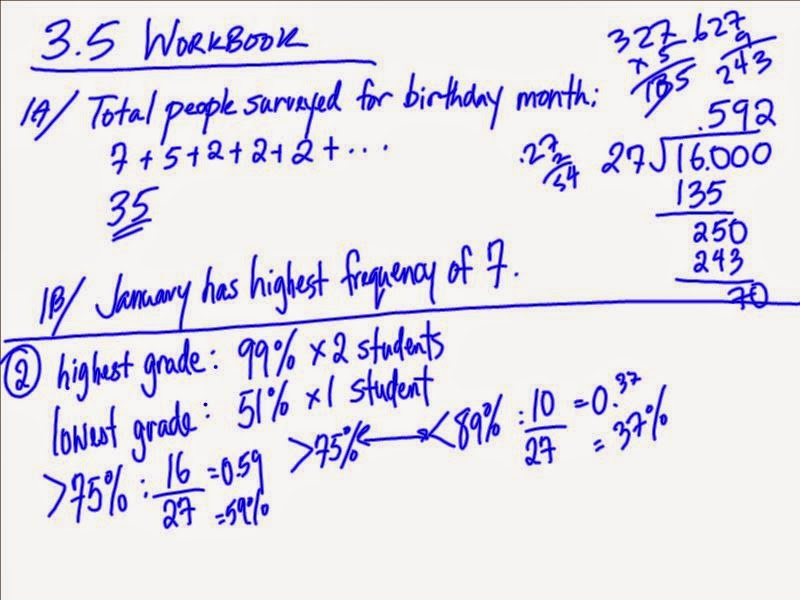 3.5 WORKBOOK
1A/ Total people surveyed for birthday month:
7+5+2+2+2+...
35
1B/ January has highest frequency of 7.
327
x 5
135
.627
9
243
.27
2
54
.592
27√16.000
135
250
243
70
② highest grade: 99% x 2 students
lowest grade: 51% x 1 student
>75% : 16/27 =0.59
=59%
>75% ↔ <89% : 10/27 =0.37
= 37%